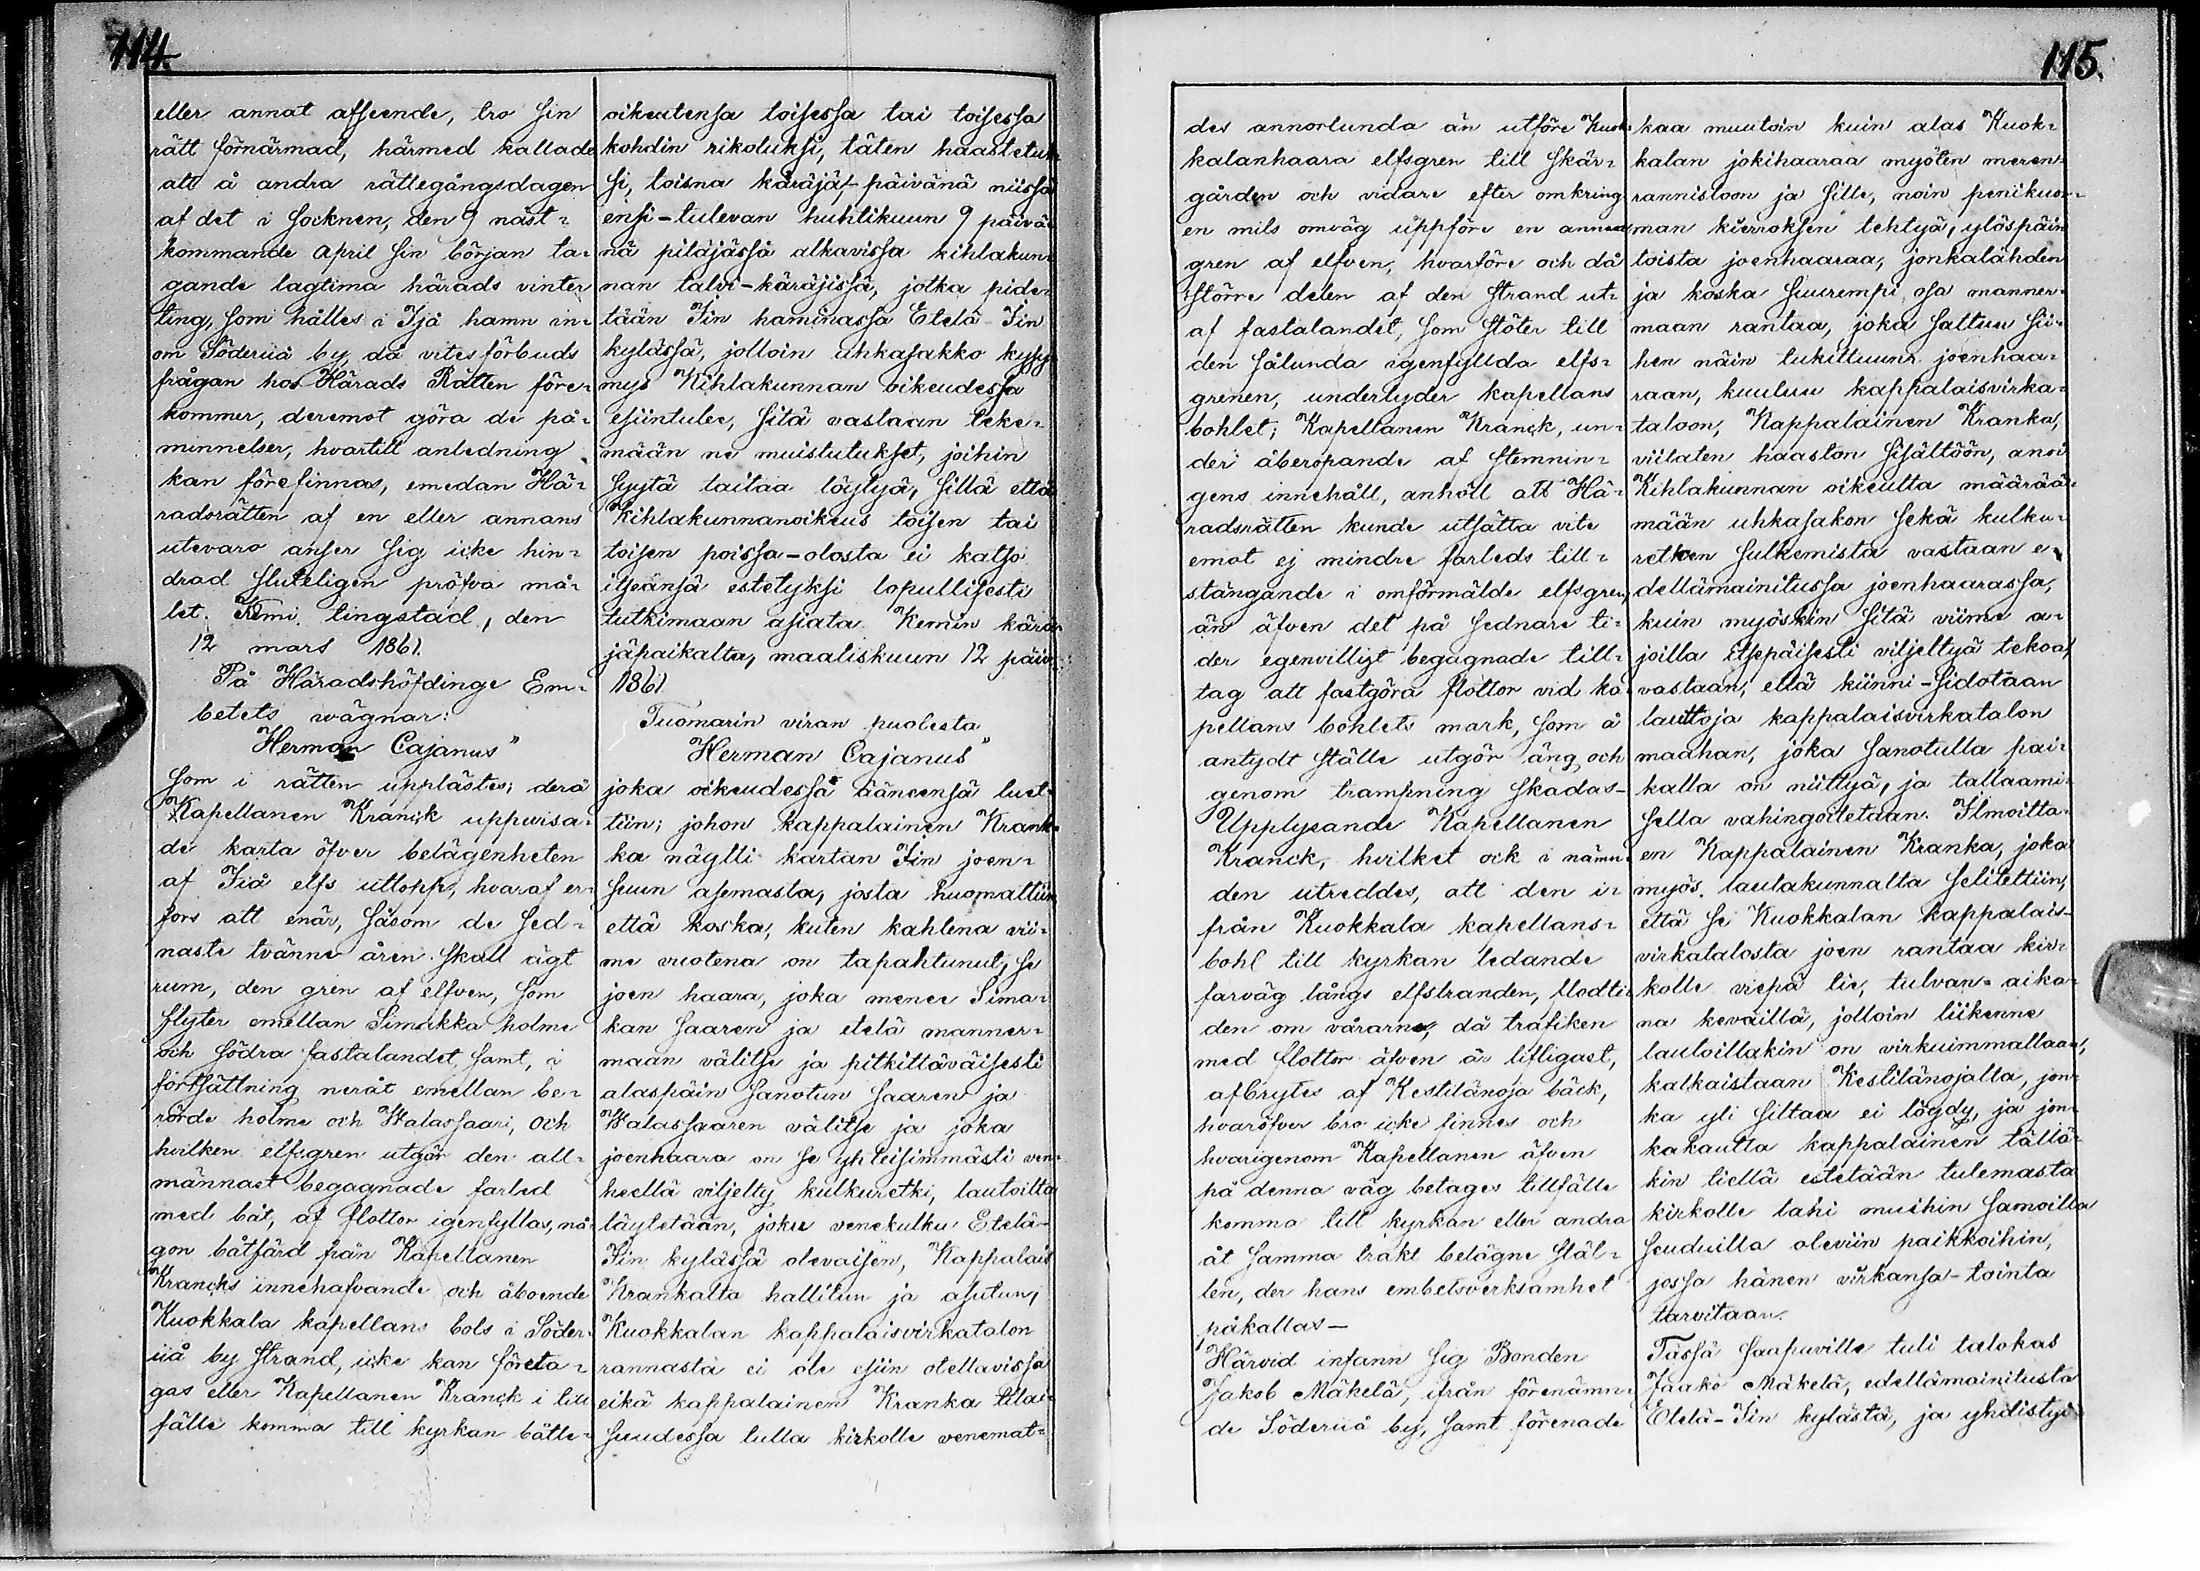 114.
eller annat afseende, tro sin
rätt förnärmad, härmed kallade
att å andra rättegångsdagen
af det i Socknen, den 9 näst-
kommande April sin början ta-
gande lagtima härads vinter
ting, som hålles i Ijå hamn in-
om Söderiiå by, då vitesförbuds
frågan hos Härads Rätten före-
kommer, deremot göra de på-
minnelser, hvartill anledning
kan förefinnas, emedan Hä-
radsrätten af en eller annans
utevaro anser sig icke hin-
drad sluteligen pröfva må-
let. Kemi tingstad, den
12 mars 1861.
På Häradshöfdinge Em-
betets wägnar:
Herman Cajanus"
som i rätten upplästes; derå
Kapellanen Kranck uppwisa-
de karta öfver belägenheten
af Iiå elfs utlopp, hvaraf er-
fors att enär, såsom de sed-
naste tvänne åren skall ägt
rum, den gren af elfven, som
flyter emellan Simakka holme
och södra fastalandet samt, i
fortsättning neråt emellan be-
rörde holme och Walassaari, och
hvilken elfsgren utgör den all-
männast begagnade farled
med båt, af flottor igenfyllas, nå-
gon båtfärd från Kapellanen
Krancks innehafvande och åboende
Kuokkala kapellans bols i Söder-
iiå by strand, icke kan företa-
gas eller Kapellanen Kranck i till
fälle komma till kyrkan båtle-
oikeutensa toisessa tai toisessa
kohdin rikotuksi, täten haastetuk-
si, toisna käräjäs-päivänä niissä
ensi-tulevan huhtikuun 9 päivä-
nä pitäjässä alkavissa kihlakun-
nan talvi-käräjissä, jotka pide-
tään Iin haminassa Etelä-Iin
kylässä, jolloin uhkasakko kysy-
mys Kihlakunnan oikeudessa
esiintulee, sitä vastaan teke-
mään ne muistutukset, joihin
syytä taitaa löytyä, sillä että
Kihlakunnanoikeus toisen tai
toisen poissa-olosta ei katso
itseänsä estetyksi lopullisesti
tutkimaan asiata. Kemin kärä-
jäpaikalta, maaliskuun 12 päiv:
1861
Tuomarin viran puolesta
Herman Cajanus"
joka oikeudessa ääneensä luet-
tiin; johon kappalainen Krank-
ka näytti kartan Iin joen-
suun asemasta, josta huomattiin
että koska, kuten kahtena vii-
me vuotena on tapahtunut, se
joen haara, joka menee Sima-
kan saaren ja etelä manner-
maan välitse ja pitkittäväisesti
alaspäin sanotun saaren ja
Walassaaren välitse ja joka
joenhaara on se yhteisimmästi ven-
heellä viljelty kulkuretki, lautoilta
täytetään, joku venekulku Etelä-
Iin kylässä olevaisen, Kappalais
Krankalta hallitun ja asutun,
Kuokkalan kappalaisvirkatalon
rannasta ei ole esiin otettavissa
eikä kappalainen Kranka tilai-
suudessa tulla kirkolle venemat-
115.
des annorlunda än utföre Kuok-
kalanhaara elfsgren till skär-
gården och vidare efter omkring
en mils omväg uppföre en annan
gren af elfven, hvarföre och då
större delen af den strand ut-
af fastalandet, som stöter till
den sålunda igenfyllda elfs-
grenen, underlyder kapellans
bohlet; Kapellanen Kranck, un-
der åberopande af stemnin-
gens innehåll, anhöll att Hä-
radsrätten kunde utsätta vite
emot ej mindre farleds till-
stängande i omförmälde elfsgren,
än äfven det på sednare ti-
der egenvilligt begagnade till-
tag att fastgöra flottor vid ka-
pellans bohlets mark, som å
antydt ställe utgör äng och
genom trampning skadas-
Upplysande Kapellanen
Kranck, hvilket ock i nämn-
den utreddes, att den i-
från Kuokkala kapellans-
bohl till kyrkan ledande
farväg långs elfstranden, flodti-
den om vårarne, då trafiken
med flottor äfven är lifligast,
afbrytes af Kestilänoja bäck,
hvaröfver bro icke finnes och
hvarigenom Kapellanen äfven
på denna väg betages tillfälle
komma till kyrkan eller andra
åt samma trakt belägne stäl-
len, der hans embetsverksamhet
påkallas—
Härvid infann sig Bonden
Jakob Mäkelä, ifrån förenämn-
de Söderiiå by, samt förenade
kaa muutoin kuin alas Kuok-
kalan jokihaaraa myöten meren-
rannistoon ja sille, noin penikuor-
man kierroksen tehtyä, ylöspäin
toista joenhaaraa, jonkatähden
ja koska suurempi osa manner-
maan rantaa, joka sattuu sii-
hen näin tukittuun joenhaa-
raan, kuuluu kappalaisvirka-
taloon, Kappalainen Kranka,
viitaten haaston sisältöön, anoi
Kihlakunnan oikeutta määrää-
mään uhkasakon sekä kulku-
retken sulkemista vastaan e-
dellämainitussa joenhaarassa,
kuin myöskin sitä viime a-
joilla itsepäisesti viljeltyä tekoa
vastaan, että kiinni-sidotaan
lauttoja kappalaisvirkatalon
maahan, joka sanotulla pai-
kalla on niittyä, ja tallaami-
sella vahingoitetaan. Ilmoitta-
en Kappalainen Kranka, joka
myös lautakunnalta selitettiin,
että se Kuokkalan kappalais-
virkatalosta joen rantaa kir-
kolle viepä tie, tulvan-aika-
na keväillä, jolloin liikenne
lautoillakin on virkuimmallaan,
katkaistaan Kestilänojalta, jon-
ka yli siltaa ei löydy, ja jon-
kakautta kappalainen tällä-
kin tiellä estetään tulemasta
kirkolle tahi muihin samoilla
seuduilla oleviin paikkoihin,
jossa hänen virkansa-tointa
tarvitaan.
Tässä saapuville tuli talokas
Jaako Mäkelä, edellämainitusta
Etelä-Iin kylästä, ja yhdistyi